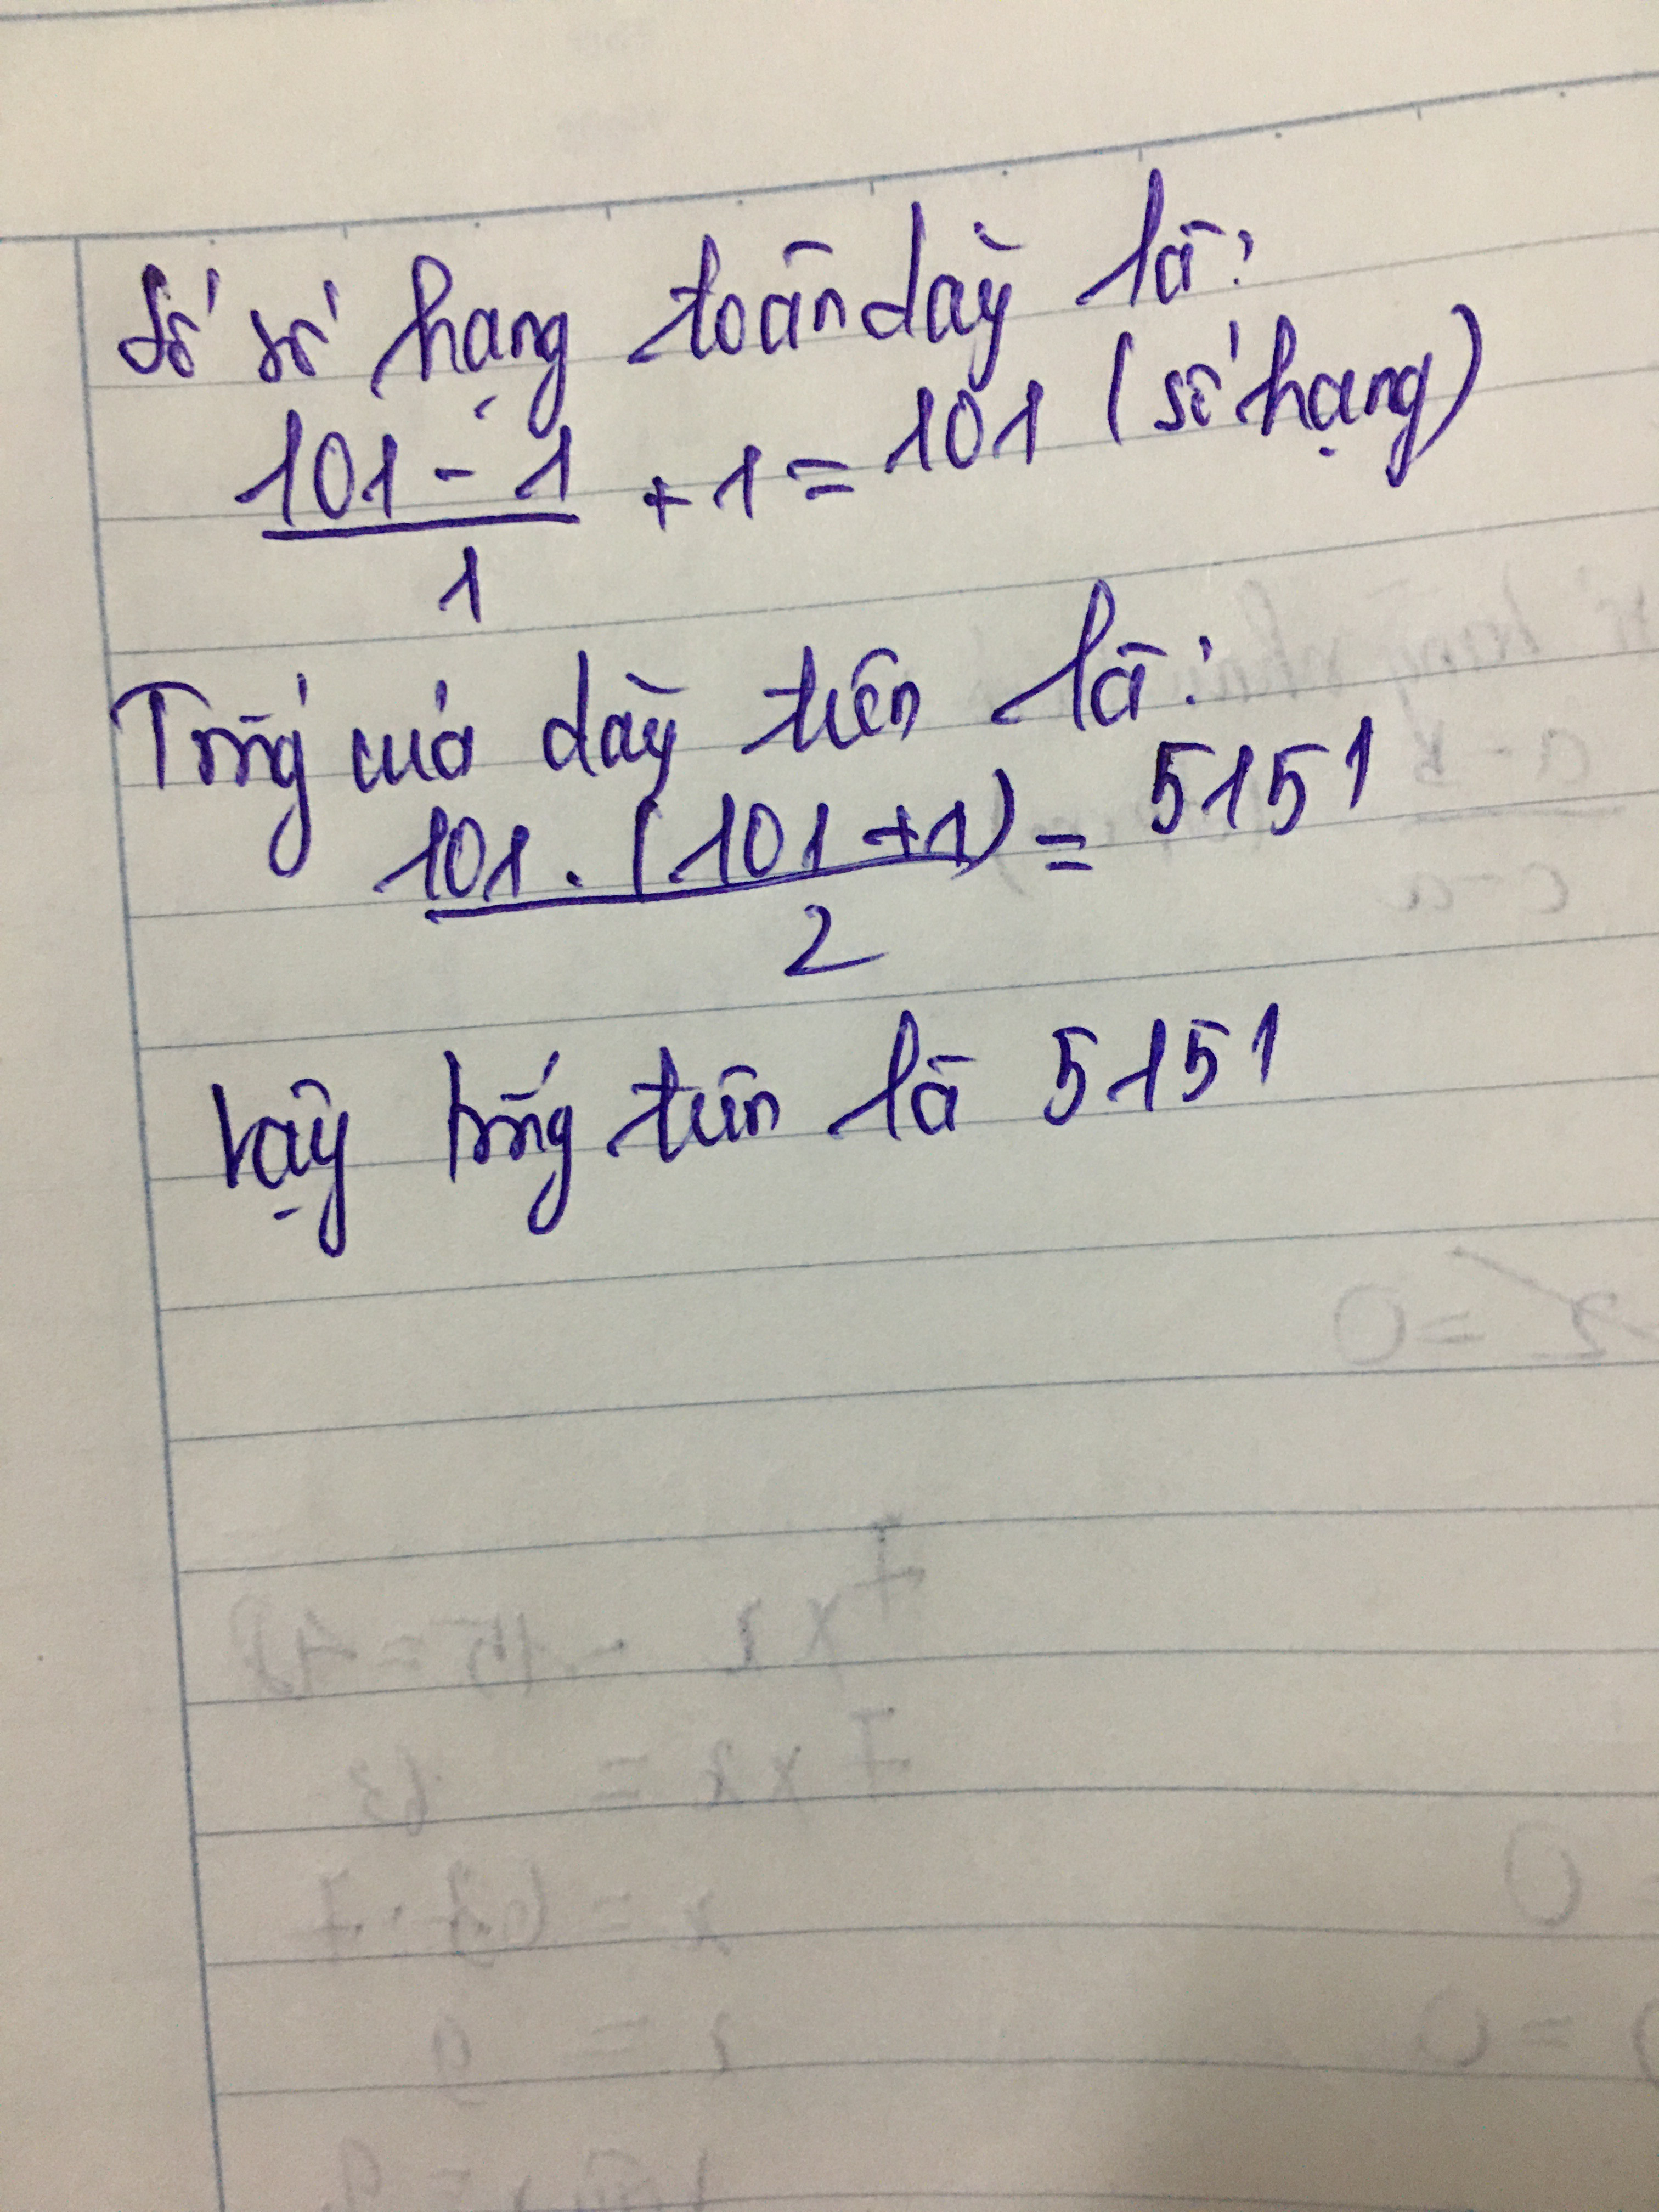 Số số hạng toàn dãy là:
101 - 1 / 1 + 1 = 101 (số hạng)
Tổng của dãy trên là:
101 . (101 + 1) / 2 = 5151
Vậy tổng trên là 5151